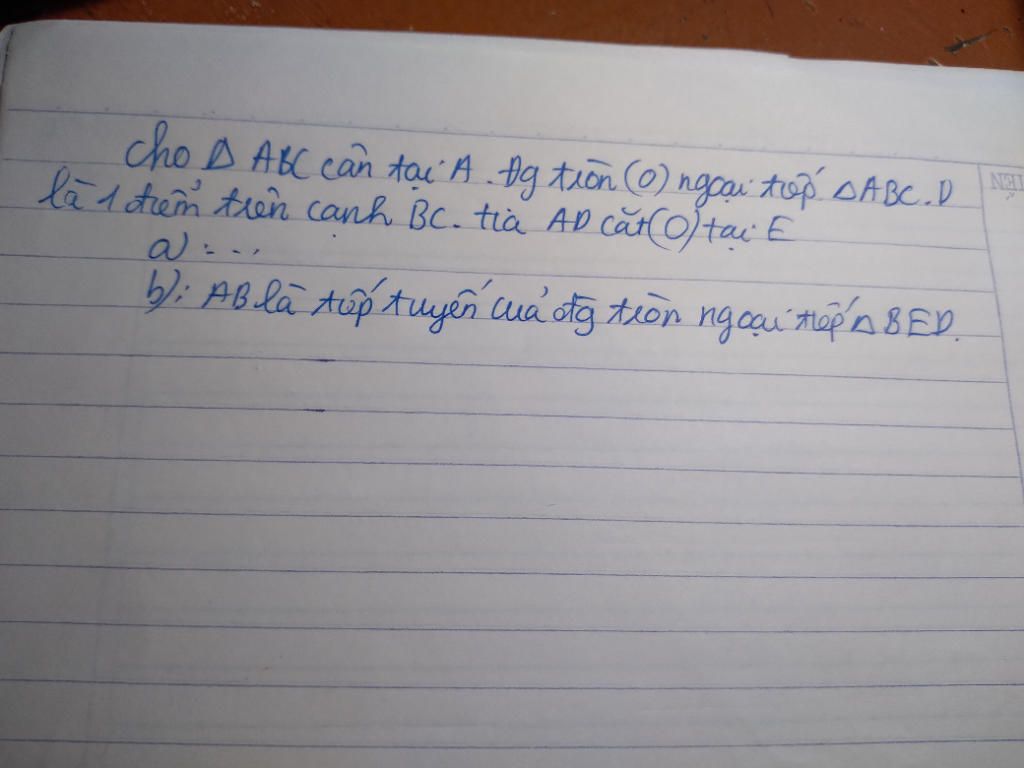 Cho Δ ABC cân tại A. Đg tròn (O) ngoại tiếp ΔABC. D
là 1 điểm trên cạnh BC. tia AD cắt (O) tại E
a) : ...
b): AB là tiếp tuyến của đtg tròn ngoại tiếp Δ BED.